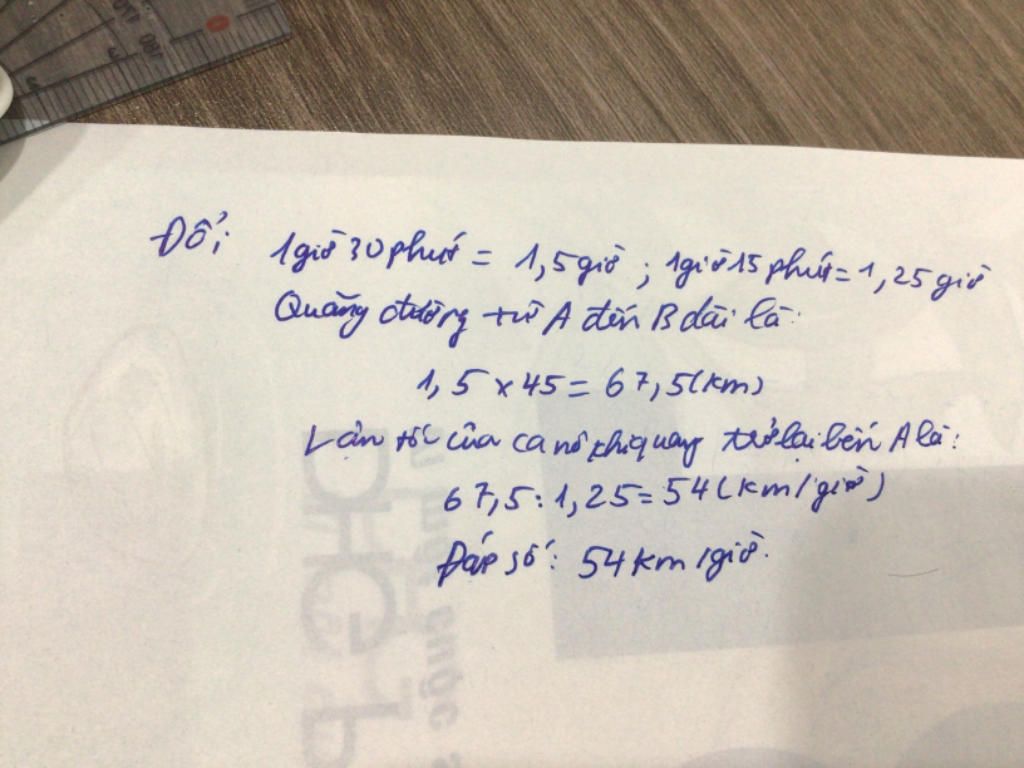 Đổi: 1giờ 30 phút = 1,5 giờ ; 1giờ 15 phút = 1,25 giờ
Quãng đường từ A đến B dài là:
1,5 × 45 = 67,5 (km)
Vận tốc của ca nô khi quay trở lại bến A là:
67,5 : 1,25 = 54 (km/giờ)
Đáp số: 54 km/giờ.